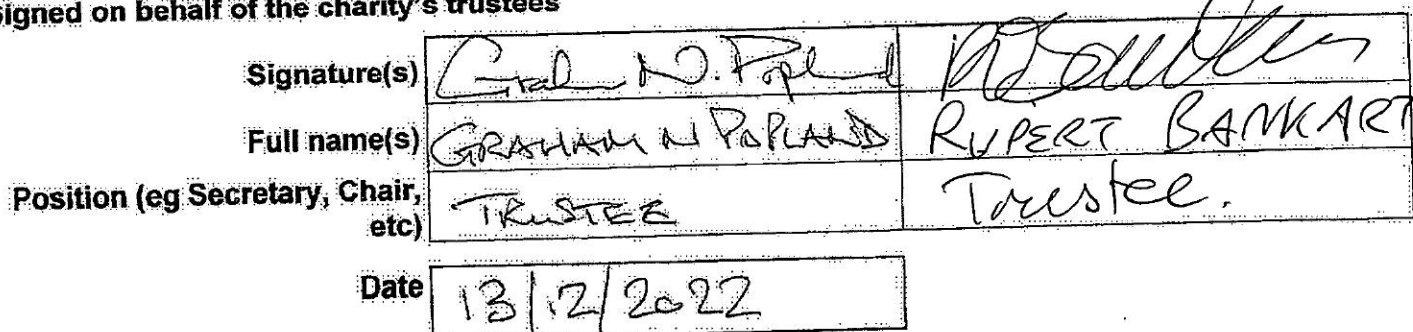 signed on behalf of the charity's trustees
Signature(s) Graham N. Popland
Full name(s) GRAHAM N POPLAND RUPERT BANKART
Position (eg Secretary, Chair, etc) TRUSTEE Trustee.
Date 13/12/2022